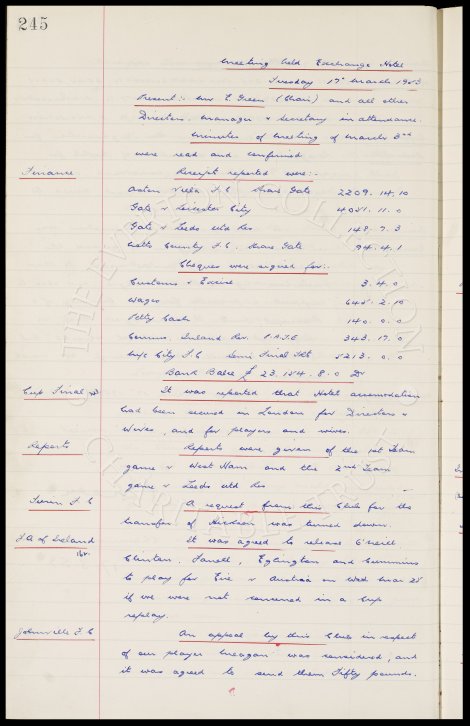 245
Meeting held Exchange Hotel
Tuesday 17th March 1953
Present:- Mr E. Green (Chair) and all other
Directors. Manager & Secretary in attendance.
Minutes of Meeting of March 3rd
were read and confirmed
Finance
Receipt reported were:-
Aston Villa F.C. Share Gate 2209. 14. 10
Gate v Leicester City 4051. 11. 0
Gate v Leeds Utd Res 148. 7. 3
Notts County F.C. Share Gate 94. 4. 1
Cheques were signed for:-
Customs & Excise 3. 4. 0
Wages 645. 2. 10
Petty Cash 140. 0. 0
Comms. Inland Rev. P.A.Y.E 343. 17. 0
M/c City F.C Semi Final Tkt 5213. 0. 0
Bank Balce £ 23,154. 8. 0 Dr
Cup Final
It was reported that Hotel accommodation
had been secured in London for Directors &
Wives, and for players and wives.
Reports
Reports were given of the 1st Team
game v West Ham and the 2nd Team
game v Leeds Utd Res
F.C
A request from this Club for the
transfer of was turned down.
F.A of Ireland
It was agreed to release O'Neill
Clinton, Farrell, Eglington and Cummins
to play for Eire v Austria on Wed Mar 25
if we were not concerned in a Cup
replay.
Johnville F.C
An appeal by this Club in respect
of our player Meagan was considered, and
it was agreed to send them Fifty pounds.
THE EVERTON COLLECTION
CHARITABLE TRUST